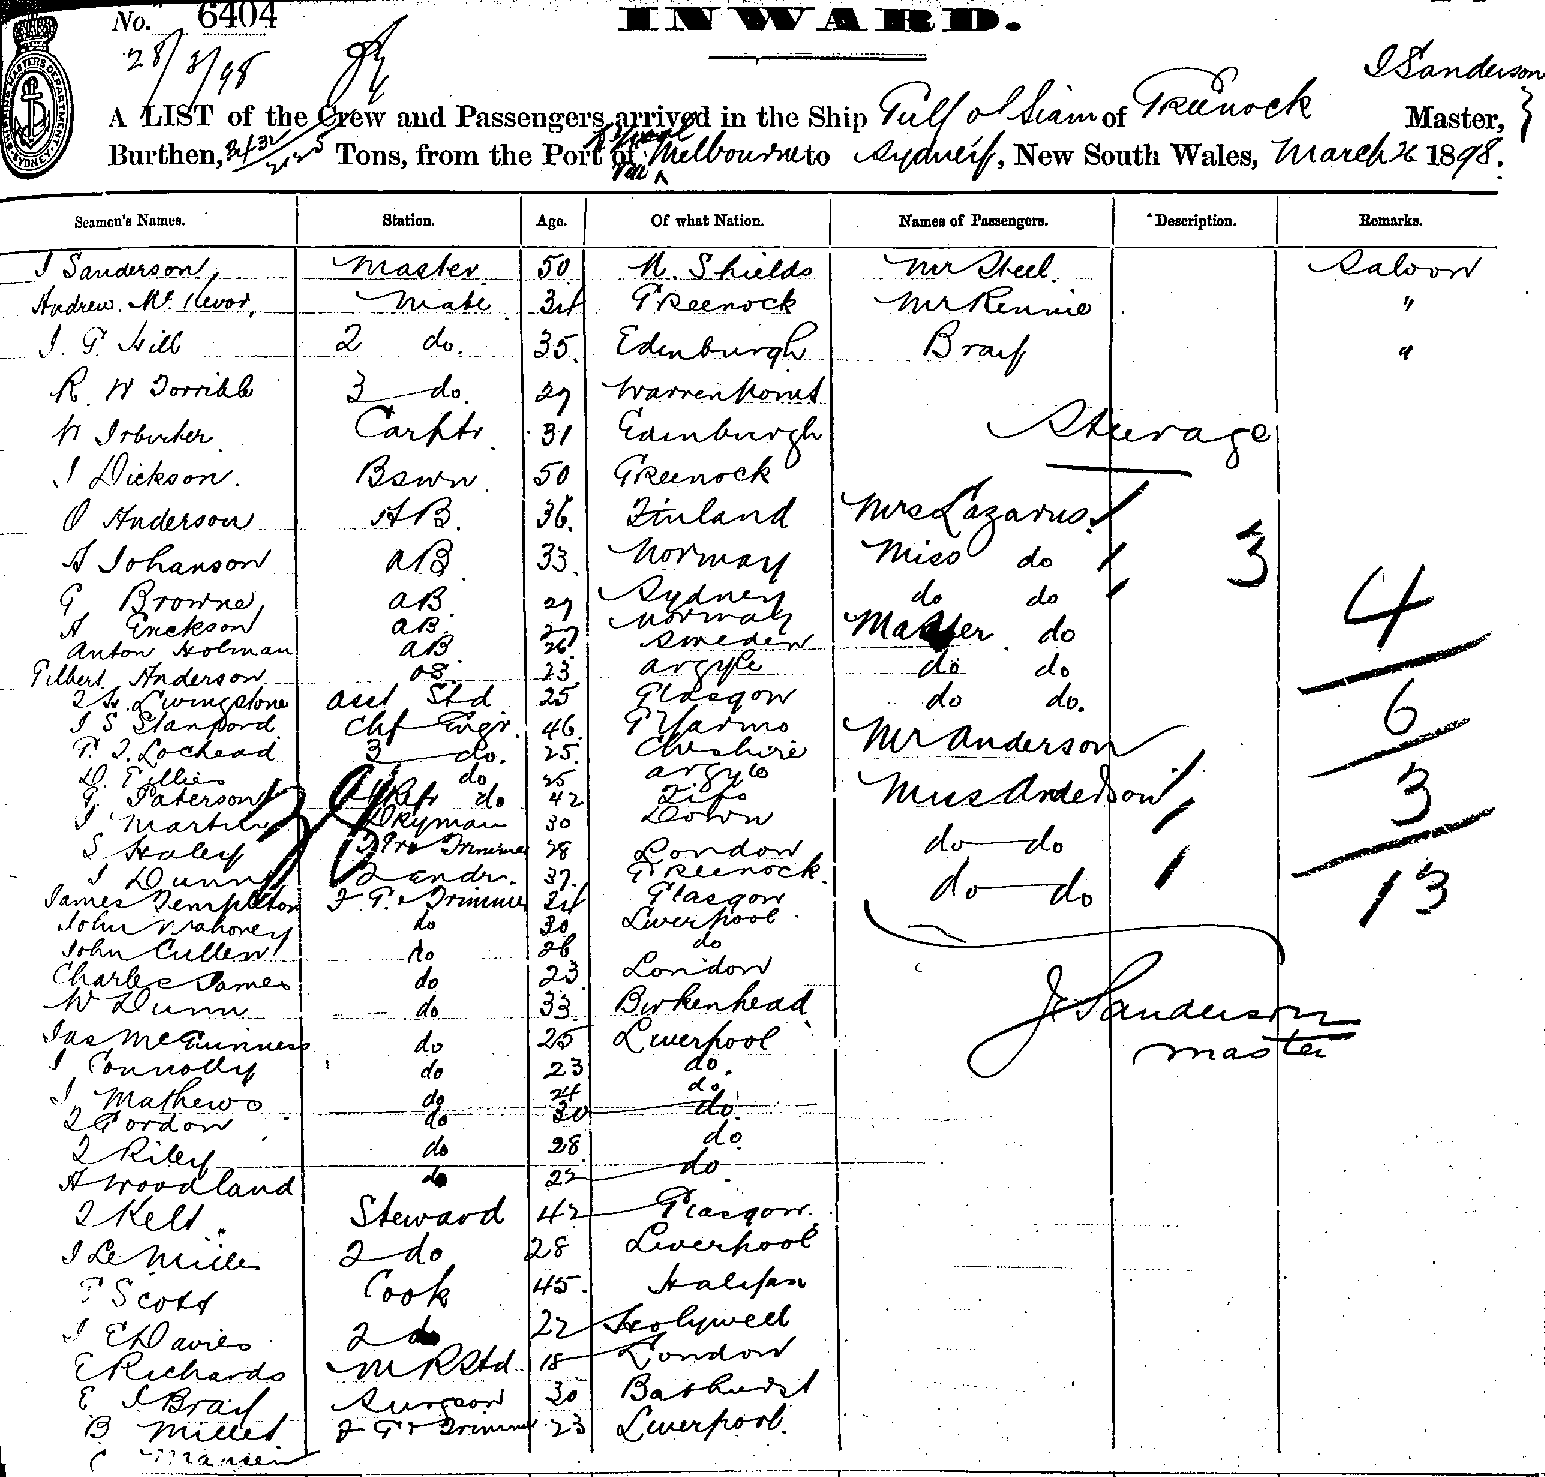 No. 6404
INWARD.
28/3/98
J Sanderson
A LIST of the Crew and Passengers arrived in the Ship Gulf of Siam of Greenock Master,
Burthen, Tons, from the Port of Liverpool via Melbourne to Sydney, New South Wales, March 26 1898.
Seamen's Names. Station. Age. Of what Nation. Names of Passengers. Description. Remarks.
J Sanderson Master 50 N. Shields Mr Steel. Saloon
Andrew Mate 34 Greenock Mr Rennie "
J. G. Hill 2 do. 35. Edinburgh Bray "
R. W Torrible 3 do. 29 Warrenpoint
W Carptr 31 Edinburgh Steerage
J Dickson. Bswn. 50 Greenock
O Anderson AB. 36. Finland Mrs Lazarus.
A Johanson AB 33. Norway Miss do 3
G Browne AB. 29 Sydney do do 4
A Erickson AB. 27 Norway Master do
Anton Holman AB 26 Sweden
Gilbert Anderson OS 23 Argyle do do
Livingstone Asst Std 25 Glasgow do do. 6
J S Stanford Chf Engr. 46. Mr Anderson
G. J. Lochead 3 do. 25. Cheshire
D. Gillies do 25 Argyle Miss Anderson 3
G Paterson do 42 Fife
J Martin Dkyman 30 Down
S Haley Fire Trimmer 28 London do do
J Dunn 37. Greenock. do do 13
James Templeton F. & Trimmer 34 Glasgow
John Mahoney do 30 Liverpool
John Cullen do 26 do
Charles James do 23 London
W Dunn do 33 Birkenhead J Sanderson
Jas McGuinness do 25 Liverpool Master
J Connolly do 23 do.
J Mathews do 24 do.
J Gordon do 30 do.
J Riley do 28 do
A Woodland do 22 do
J Kelt. Steward 42 Glasgow.
J Le Mille 2 do 28 Liverpool
G Scott Cook 45. Halifax
J E Davies 2 do 22 Holywell
E Richards M R Std 18 London
E J Bray Surgeon 30 Bathurst
B Millet F & Trimmer 23 Liverpool.
C